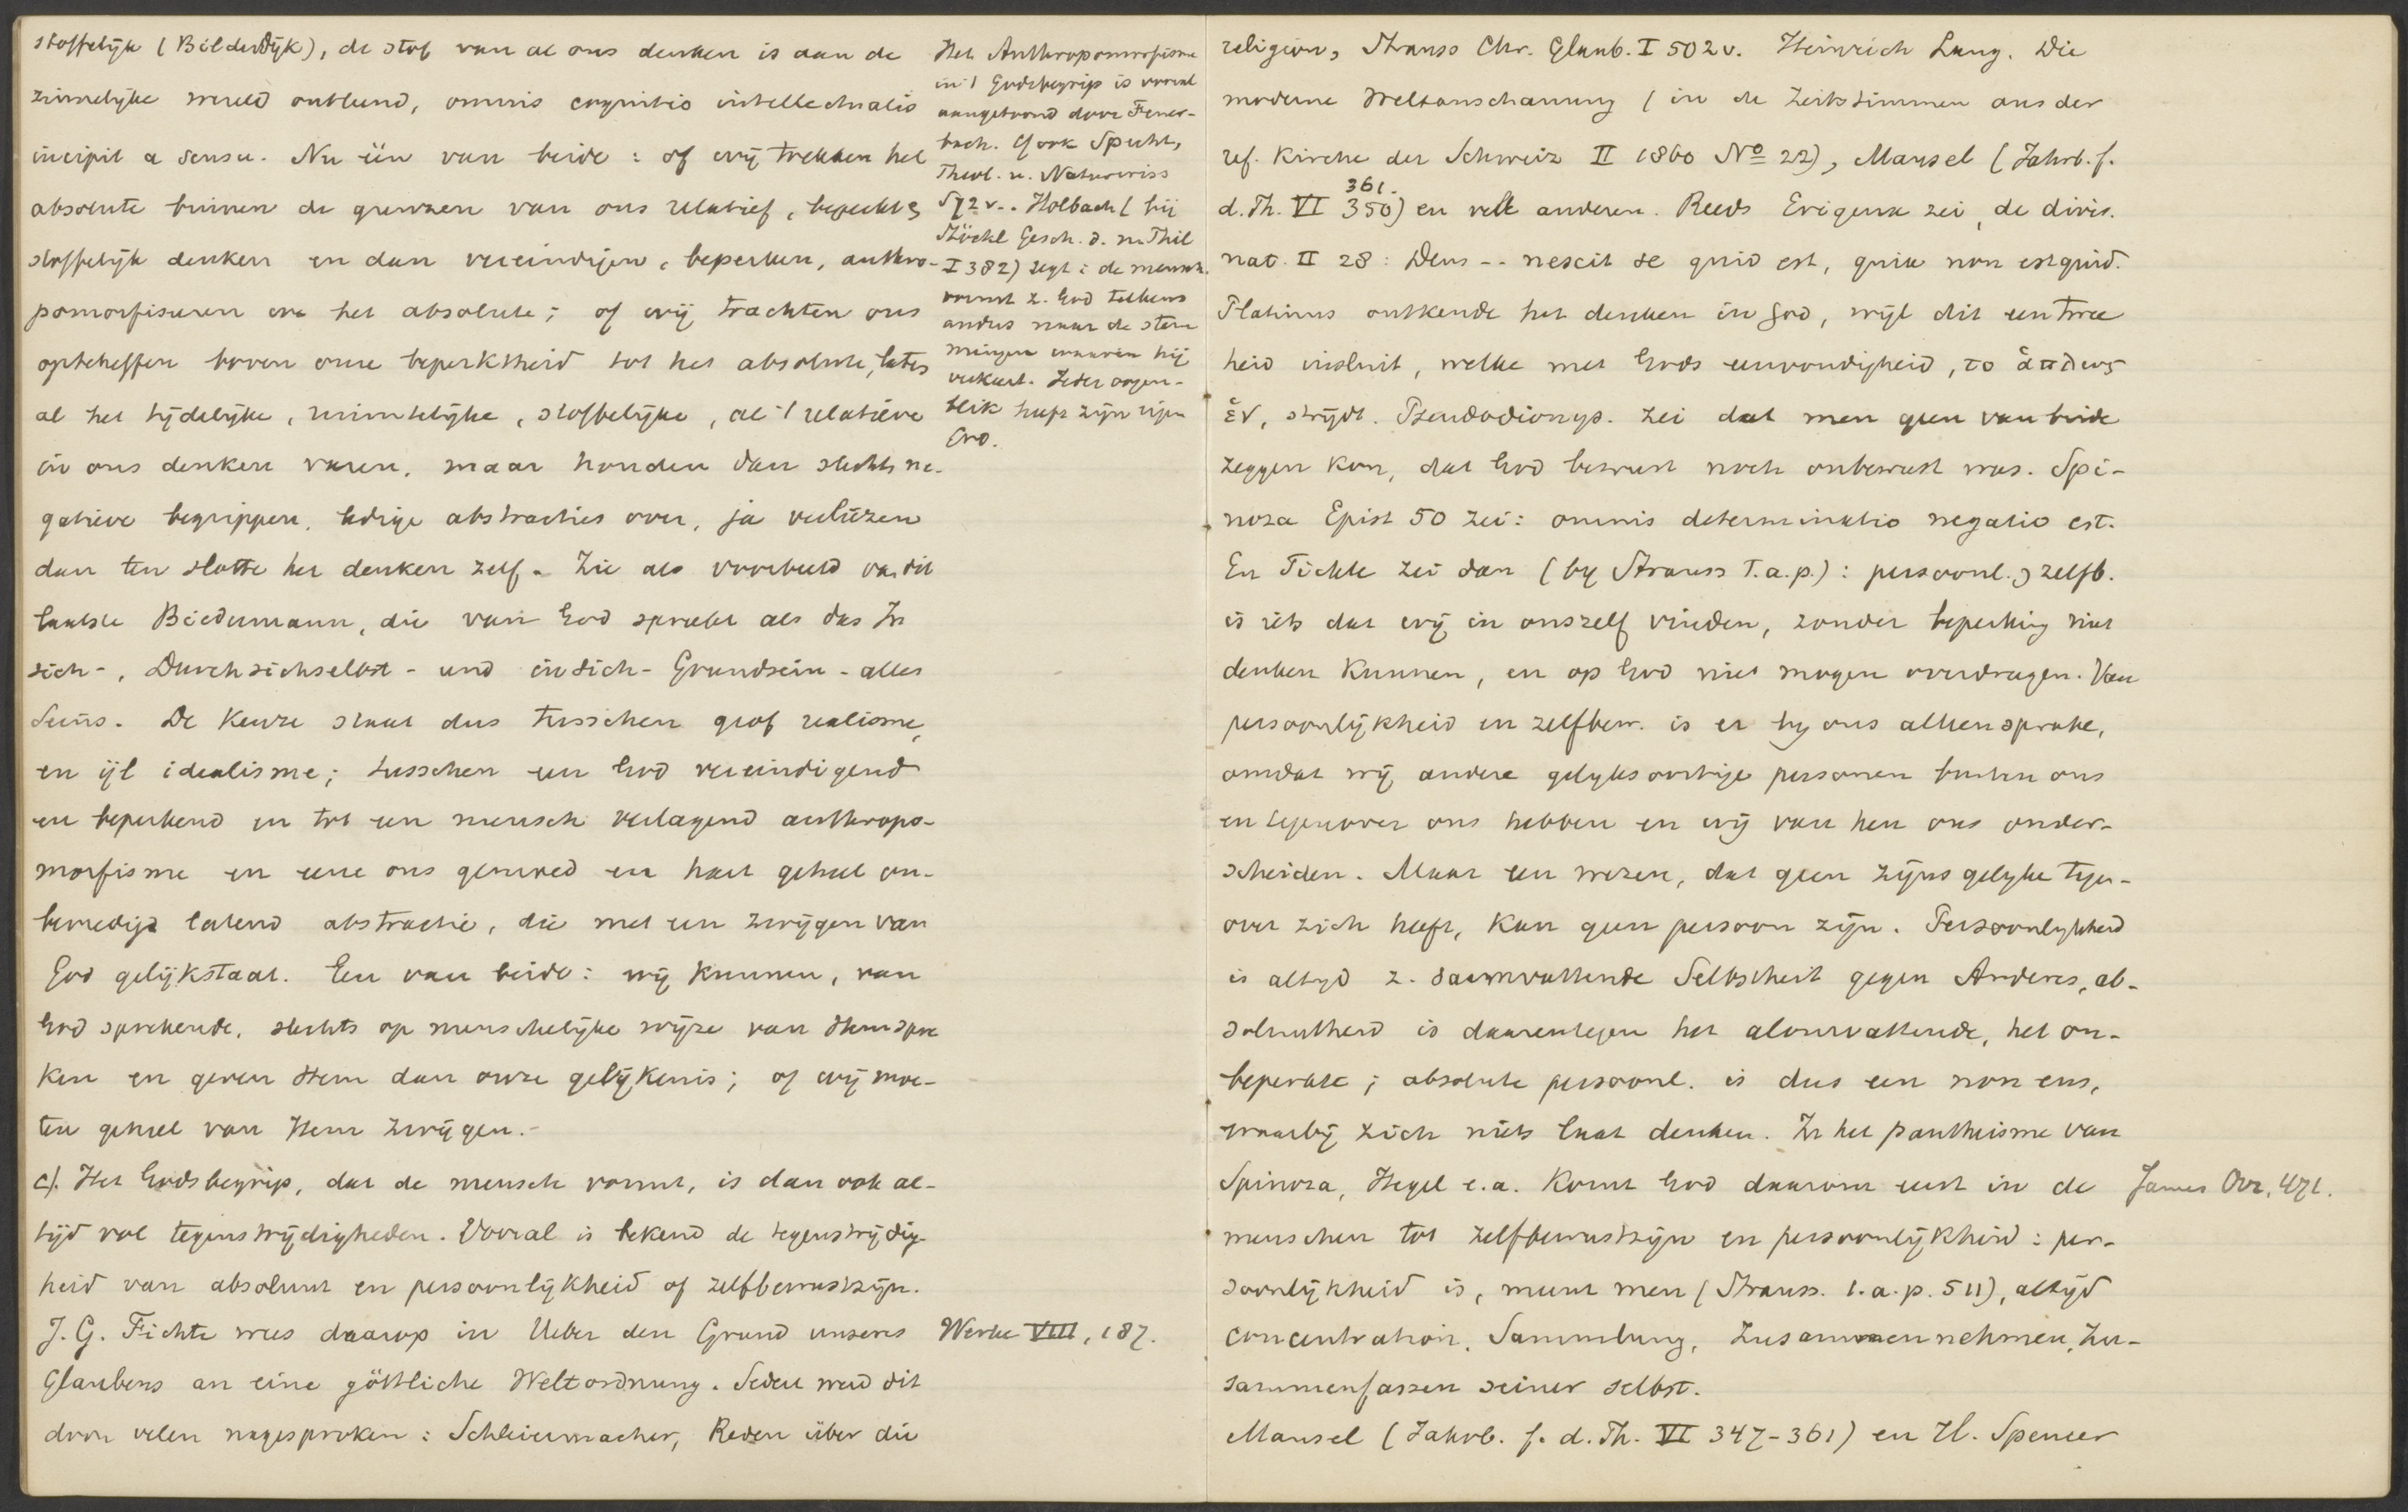 stoffelijk (Bilderdijk), de stof van al ons denken is aan de
zinnelijke wereld ontleend, omnis cognitio intellectualis
incipit a sensu. Nu één van beide: of wij trekken het
absolute binnen de grenzen van ons relatief, beperkt &
stoffelijk denken en dan vereindigen, beperken, anthro-
pomorfiseren we het absolute; of wij trachten ons
opteheffen boven onze beperktheid tot het absolute, laten
al het tijdelijke, ruimtelijke, stoffelijke, al 't relatieve
in ons denken varen, maar houden dan slechts ne-
gatieve begrippen, ledige abstracties over, ja verliezen
dan ten slotte het denken zelf. Zie als voorbeeld van dit
laatste Biedermann, die van God spreekt als das In
sich-, Durchsichselbst- und in sich- Grundsein- alles
Seins. De keuze staat dus tusschen grof realisme,
en ijl idealisme; tusschen een God vereindigend
en beperkend en tot een mensch verlagend anthropo-
morfisme en eene ons gemoed en hart geheel on-
bevredigd latend abstractie, die met een zwijgen van
God gelijkstaat. Een van beide: wij kunnen, van
God sprekende, slechts op menschelijke wijze van Hem spre
ken en geven Hem dan onze gelijkenis; of wij moe-
ten geheel van Hem zwijgen.-
c). Het Godsbegrip, dat de mensch vormt, is dan ook al-
tijd vol tegenstrijdigheden. Vooral is bekend de tegenstrijdig-
heid van absoluut en persoonlijkheid of zelfbewustzijn.
J. G. Fichte wees daarop in Ueber den Grund unseres
Glaubens an eine göttliche Weltordnung. Sedert werd dit
door velen nagesproken: Schleiermacher, Reden über die
Het Anthropomorfisme
in 't Godsbegrip is vooral
aangetoond door Feuer-
bach. Cf ook Specht,
Theol. u. Naturwiss
S 72 v.. Holbach (bij
Stöckl Gesch. d. n. Phil
I 382) zegt: de mensch
vormt z. God telkens
anders naar de stem
mingen waarin hij
verkeert. Ieder oogen-
blik heeft zijn eigen
God.
Werke VIII, 187.
religion, Strauss Chr. Glaub. I 502 v. Heinrich Lang. Die
moderne Weltanschauung (in de Zeitstimmen aus der
ref. Kirche der Schweiz II 1860 No 22), Mansel (Jahrb. f.
361.
d. Th. VI 350) en vele anderen. Reeds Erigena zei, de divis.
nat. II 28: Deus -- nescit se quid est, quia non est quid.
Plotinus ontkende het denken in God, wijl dit een twee
heid insluit, welke met Gods eenvoudigheid, το ἁπλως
ἑν, strijdt. Pseudodionys. zei dat men geen van beide
zeggen kon, dat God bewust noch onbewust was. Spi-
noza Epist 50 zei: omnis determinatio negatio est.
En Fichte zei dan (by Strauss t.a.p.): persoonl. & zelfb.
is iets dat wij in onszelf vinden, zonder beperking niet
denken kunnen, en op God niet mogen overdragen. Van
persoonlijkheid en zelfbew. is er by ons alleen sprake,
omdat wij andere gelyksoortige personen buiten ons
en tegenover ons hebben en wij van hen ons onder-
scheiden. Maar een wezen, dat geen zijns gelyke tegen-
over zich heeft, kan geen persoon zijn. Persoonlykheid
is altyd z. saamvattende Selbstheit gegen Anderes, ab-
soluutheid is daarentegen het alomvattende, het on-
beperkte; absolute persoonl. is dus een non ens,
waarbij zich niets laat denken. In het pantheisme van
Spinoza, Hegel e.a. komt God daarom eerst in de
menschen tot zelfbewustzijn en persoonlijkheid: per-
soonlijkheid is, meent men (Strauss. t.a.p. 511), altijd
concentration, Sammlung, Zusammennehmen, Zu-
sammenfassen seiner selbst.
Mansel (Jahrb. f. d. Th. VI 347-361) en H. Spencer
James Ovr. 471.